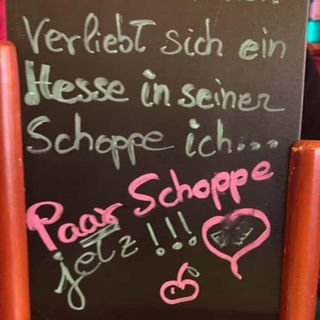 Verliebt sich ein
Hesse in seiner
Schoppe ich...
Paar Schoppe
jetz!!!